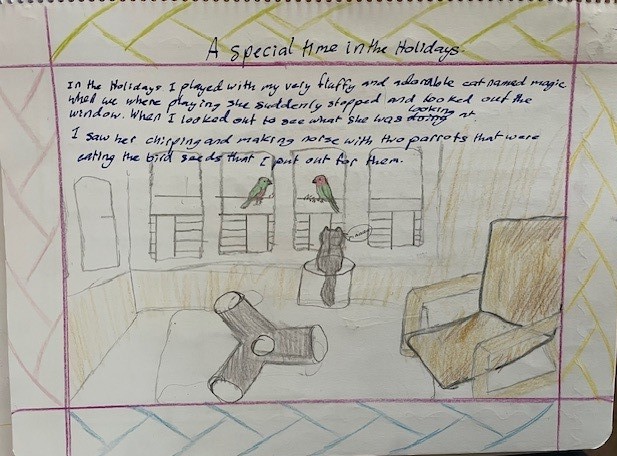 A special time in the Holidays.
In the Holidays I played with my very fluffy and adorable cat named magic
when we where playing she suddenly stopped and looked out the
window. When I looked out to see what she was looking at.
I saw her chirping and making noise with two parrots that were
eating the bird seeds that I put out for them.